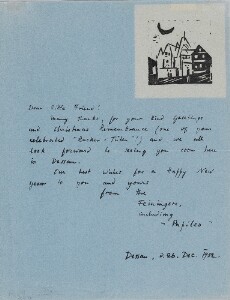 Dear Little Friend!
Many thanks for your kind Greetings
and Christmas Remembrance (one of your
celebrated
and we all
look forward to seeing you soon here
in Dessau.
Our best wishes for a Happy New
Year to you and yours
from the
Feiningers,
including
"Papileo"
Dessau, 28. Dec. 19